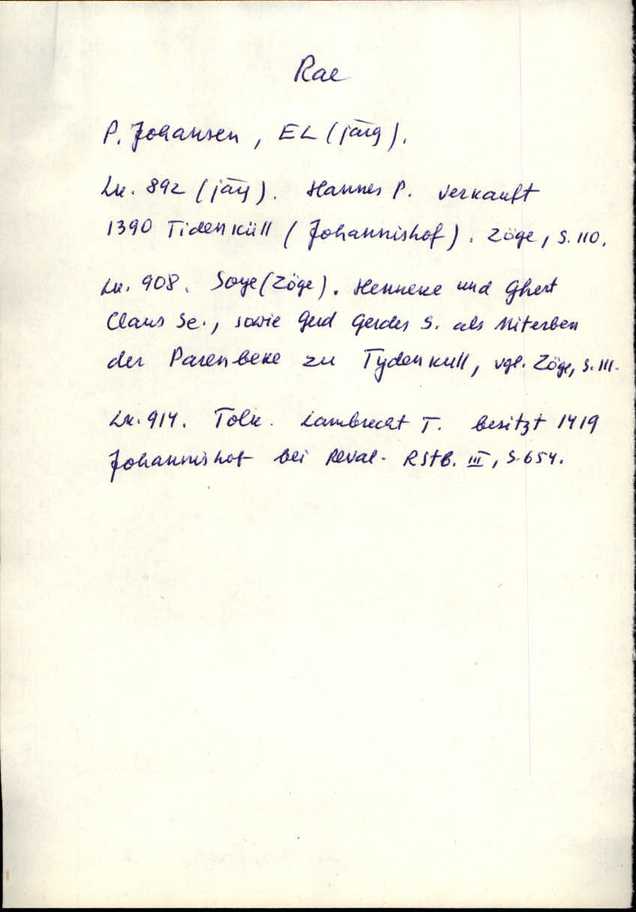 Rae
P. Johansen, EL (järg).
Lk. 892 (järg). Hannes P. verkauft
1390 Tidenküll (Johannishof). Zöge, S. 110.
Lk. 908. Soye (Zöge). Henneke und Ghert
Claus Se., sowie Gerd Gerdes S. als Miterben
der Parenbeke zu Tydenkull, vgl. Zöge, S. 111.
Lk. 914. Tolk. Lambrecht T. besitzt 1419
Johannishof bei Reval. RStB. III, S. 654.